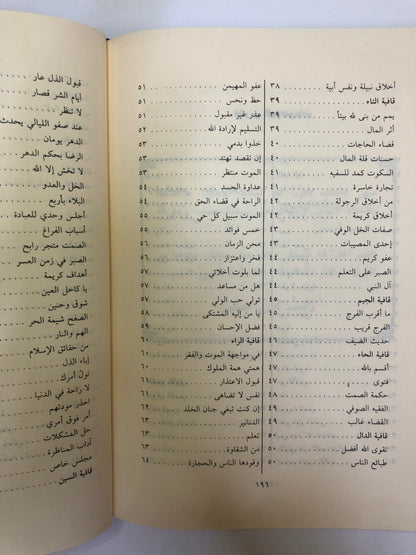 أخلاق نبيلة ونفس أبية ٣٨
قافية التاء ٣٩
يمم من بنى لله بيتاً ٣٩
أثر المال ٣٩
قضاء الحاجات ٤٠
حسنات قلة المال ٤٠
السكوت كمد للسفيه ٤٠
تجارة خاسرة ٤١
من أخلاق الرجولة ٤٢
أخلاق كريمة ٤٢
صفات الخل الوفي ٤٢
إحدى المصيبات ٤٣
عفو كريم ٤٣
الصبر على التعلم ٤٤
آل النبي ٤٤
قافية الجيم ٤٥
ما أقرب الفرج ٤٥
الفرج قريب ٤٥
حديث الضيف ٤٥
قافية الحاء ٤٦
أقسم بالله ٤٧
فتوى ٤٧
حكمة الصمت ٤٧
الفقيه الصوفي ٤٨
القضاء غالب ٤٨
قافية الدال ٤٩
تقوى الله أفضل ٥٠
طبائع الناس ٥٠
عفو المهيمن ٥١
حظ ونحس ٥١
عذر غير مقبول ٥١
التسليم لإرادة الله ٥٢
خذوا بدمي ٥٢
إن تقصد نهتد ٥٣
الموت منتظر ٥٣
عداوة الحسد ٥٤
الراحة في قضاء الحق ٥٤
الموت سبيل كل حي ٥٥
خمس فوائد ٥٥
محن الزمان ٥٦
فخر واعتزاز ٥٦
لما بلوت أخلائي ٥٦
هل من مساعد ٥٧
تولي حب الولي ٥٧
يا من إليه المشتكى ٥٨
فضل الإحسان ٥٩
قافية الراء ٦٠
في مواجهة الموت والفقر ٦٠
همتي همة الملوك ٦٠
قبول الاعتذار ٦١
نفس لا تضاهى ٦١
إن كنت تبغي جنان الخلد ٦٢
الدنانير ٦٢
تعلم ٦٣
من الشقاوة ٦٣
وقودها الناس والحجارة ٦٤
١٩٦
قبول الذل عار
أيام الشر قصار
لا تنظر
عند صفو الليالي يحدث
الدهر يومان
الرضا بحكم الدهر
لا تخش إلا الله
الخل والعدو
البلاء بأربع
أجلس وحدي للعبادة
أسباب الفراغ
الصمت متجر رابح
الصبر في زمن العسر
أهداف كريمة
يا كاحل العين
شوق وحنين
الصفح شيمة الحر
الهم والنار
من حقائق الإسلام
إباء الذل
تول أمرك
لا راحة في الدنيا
احذر مودتهم
أمر فوق أمري
حل المشكلات
آداب المناظرة
مجلس خاص
قافية السين